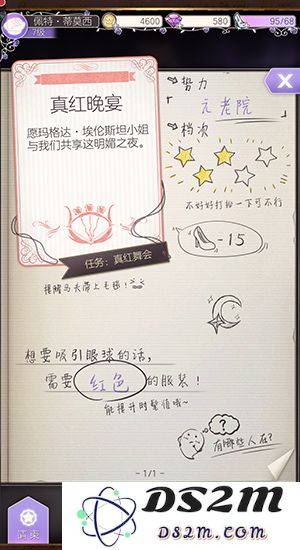 佩特·蒂莫西
7级
4600
580
95/68
真红晚宴
愿玛格达·埃伦斯坦小姐
与我们共享这明媚之夜。
任务：真红舞会
势力
元老院
档次
不好好打扮一下可不行
-15
提醒马夫带上毛毯！
想要吸引眼球的话，
需要 红色 的服装！
能提升时髦值哦~
?
有哪些人在?
1/1
请柬
DS2M
DS2M.com